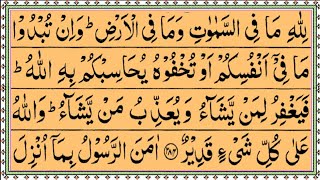 لِلّٰهِ مَا فِی السَّمٰوٰتِ وَمَا فِی الْاَرْضِ ؕ وَاِنْ تُبْدُوْا
مَا فِیْۤ اَنْفُسِكُمْ اَوْ تُخْفُوْهُ یُحَاسِبْكُمْ بِهِ اللّٰهُ ؕ
فَیَغْفِرُ لِمَنْ یَّشَآءُ وَیُعَذِّبُ مَنْ یَّشَآءُ ؕ وَاللّٰهُ
عَلٰی كُلِّ شَیْءٍ قَدِیْرٌ ﴿۲۸۴﴾ اٰمَنَ الرَّسُوْلُ بِمَاۤ اُنْزِلَ